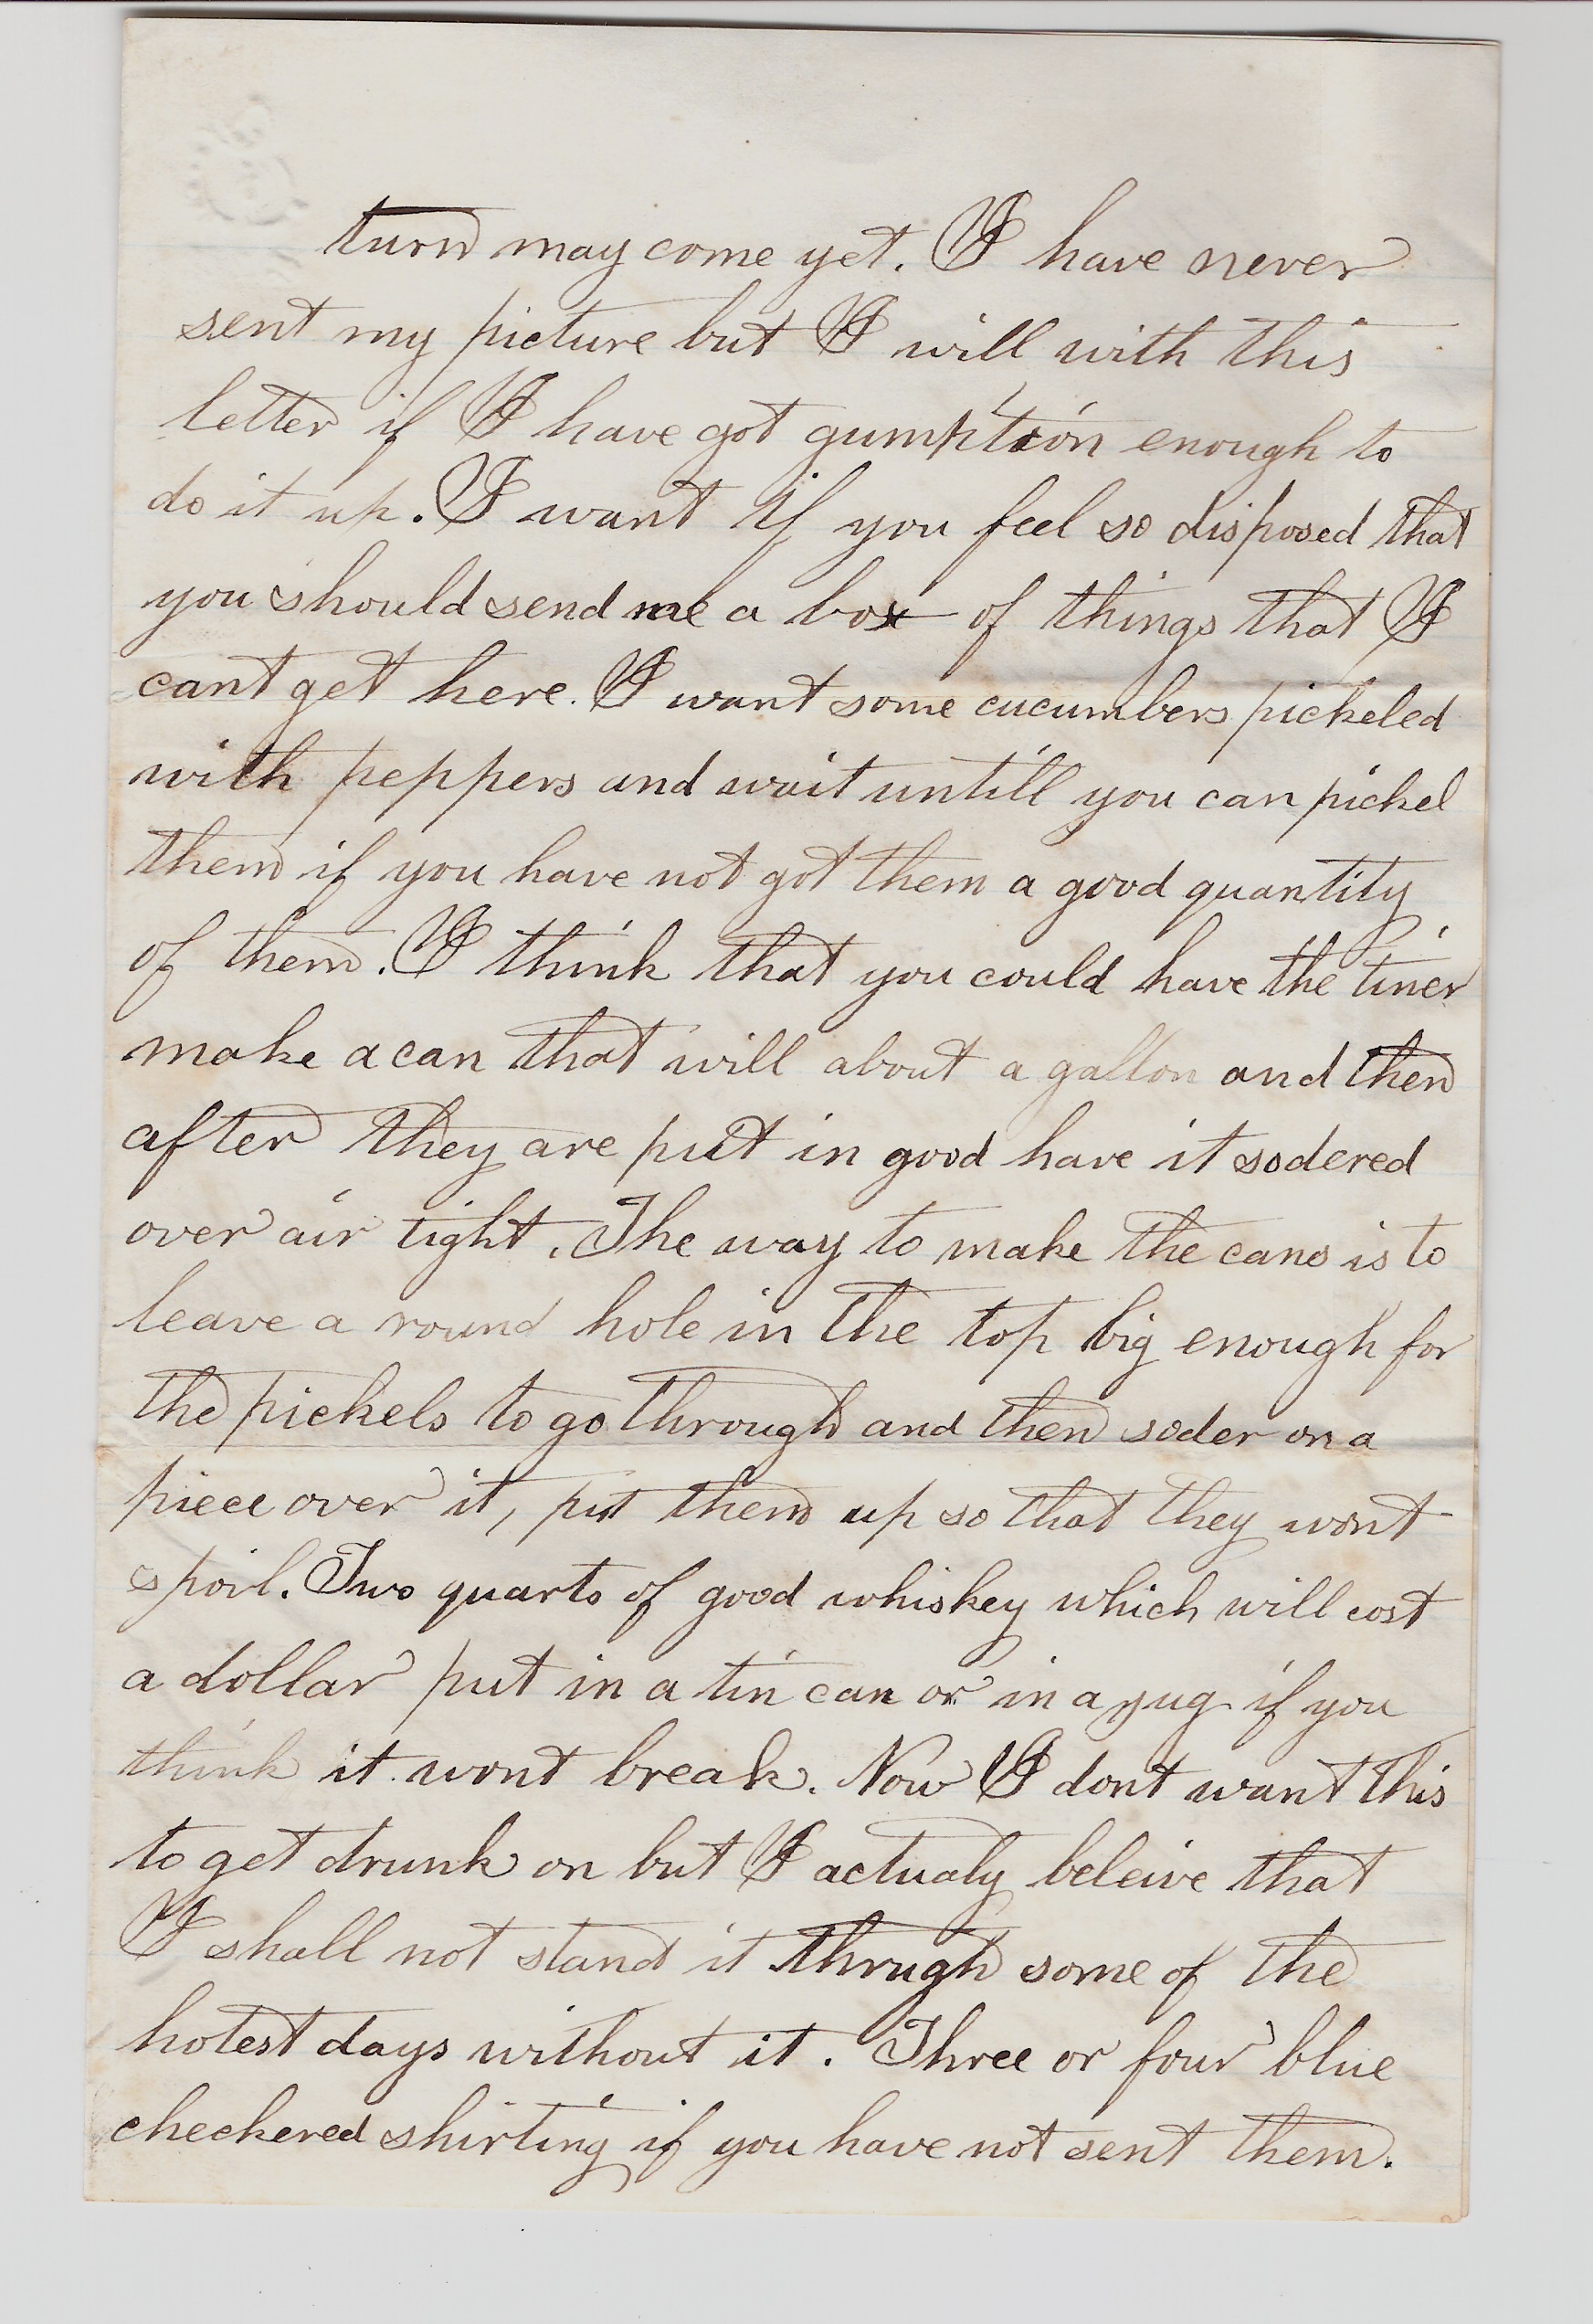 turn may come yet. I have never
sent my picture but I will with this
letter if I have got gumption enough to
do it up. I want if you feel so disposed that
you should send me a box of things that I
cant get here. I want some cucumbers pickeled
with peppers and wait untill you can pickel
them if you have not got them a good quantity
of them. I think that you could have the tiner
make a can that will about a gallon and then
after they are put in good have it sodered
over air tight. The way to make the cans is to
leave a round hole in the top big enough for
the pickels to go through and then soder on a
piece over it, put them up so that they wont
spoil. Two quarts of good whiskey which will cost
a dollar put in a tin can or in a jug if you
think it wont break. Now I dont want this
to get drunk on but I actualy beleive that
I shall not stand it through some of the
hotest days without it. Three or four blue
checkered shirting if you have not sent them.